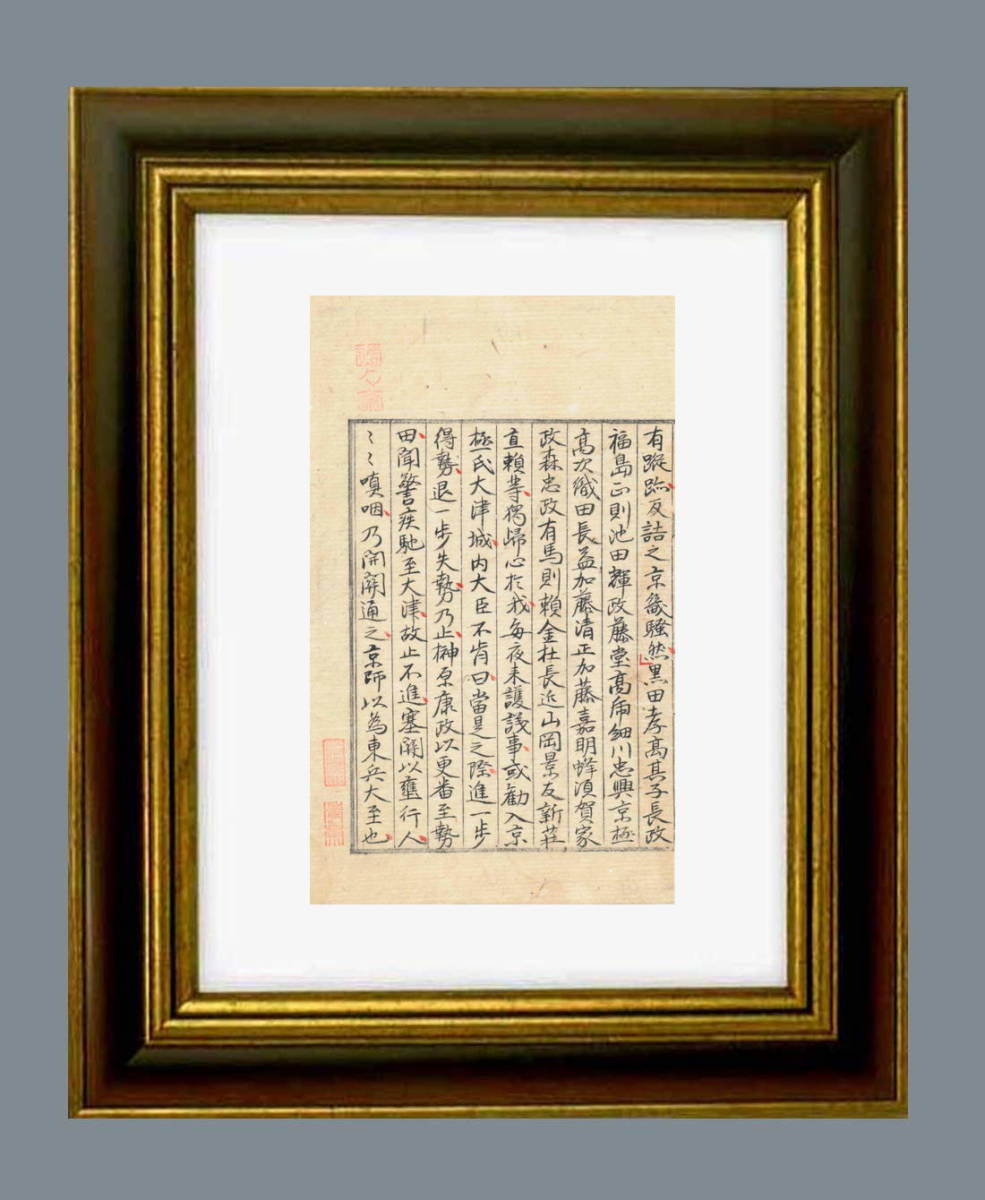 有蹤跡反詰之京畿騷然黒田孝高其子長政
福島正則池田輝政藤堂高虎細川忠興京極
高次織田長益加藤清正加藤嘉明蜂須賀家
政森忠政有馬則賴金森長近山岡景友新莊
直賴等獨歸心於我每夜来護議事或勸入京
極氏大津城内大臣不肯曰當是之際進一步
得勢退一步失勢乃止榊原康政以更番至勢
田聞警疾馳至大津故止不進塞關以壅行人
〻〻嗔咽乃開關通之京師以為東兵大至也